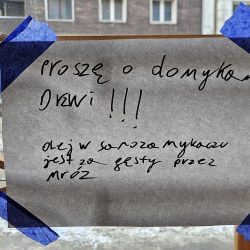 Proszę o domykan
Drzwi !!!
olej w samozamykaczu
jest za gęsty przez
mróz